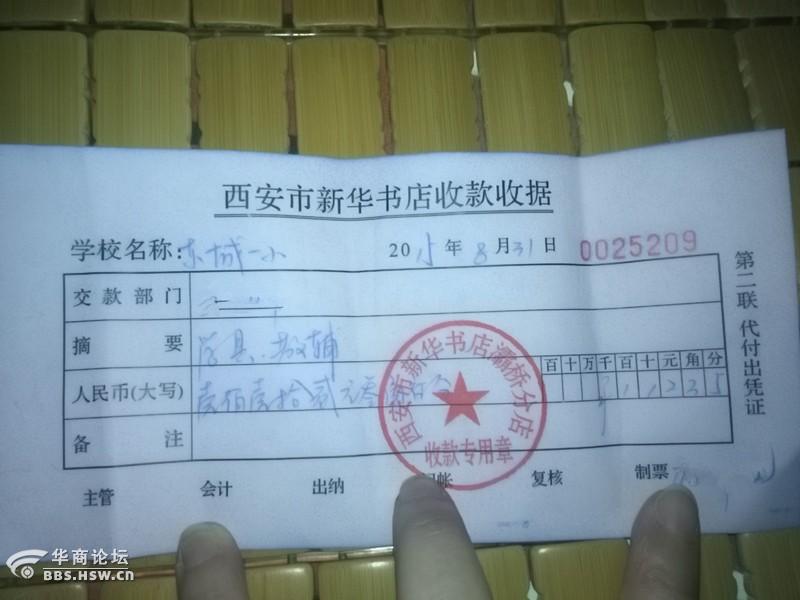 西安市新华书店收款收据
学校名称:东城一小 2015年8月31日 0025209
交款部门
摘要 学具、教辅
百十万千百十元角分
人民币(大写) 壹佰壹拾贰元零 11235
备注
主管 会计 出纳 记帐 复核 制票
第二联 代付出凭证
西安市新华书店灞桥分店
收款专用章
华商论坛
BBS.HSW.CN